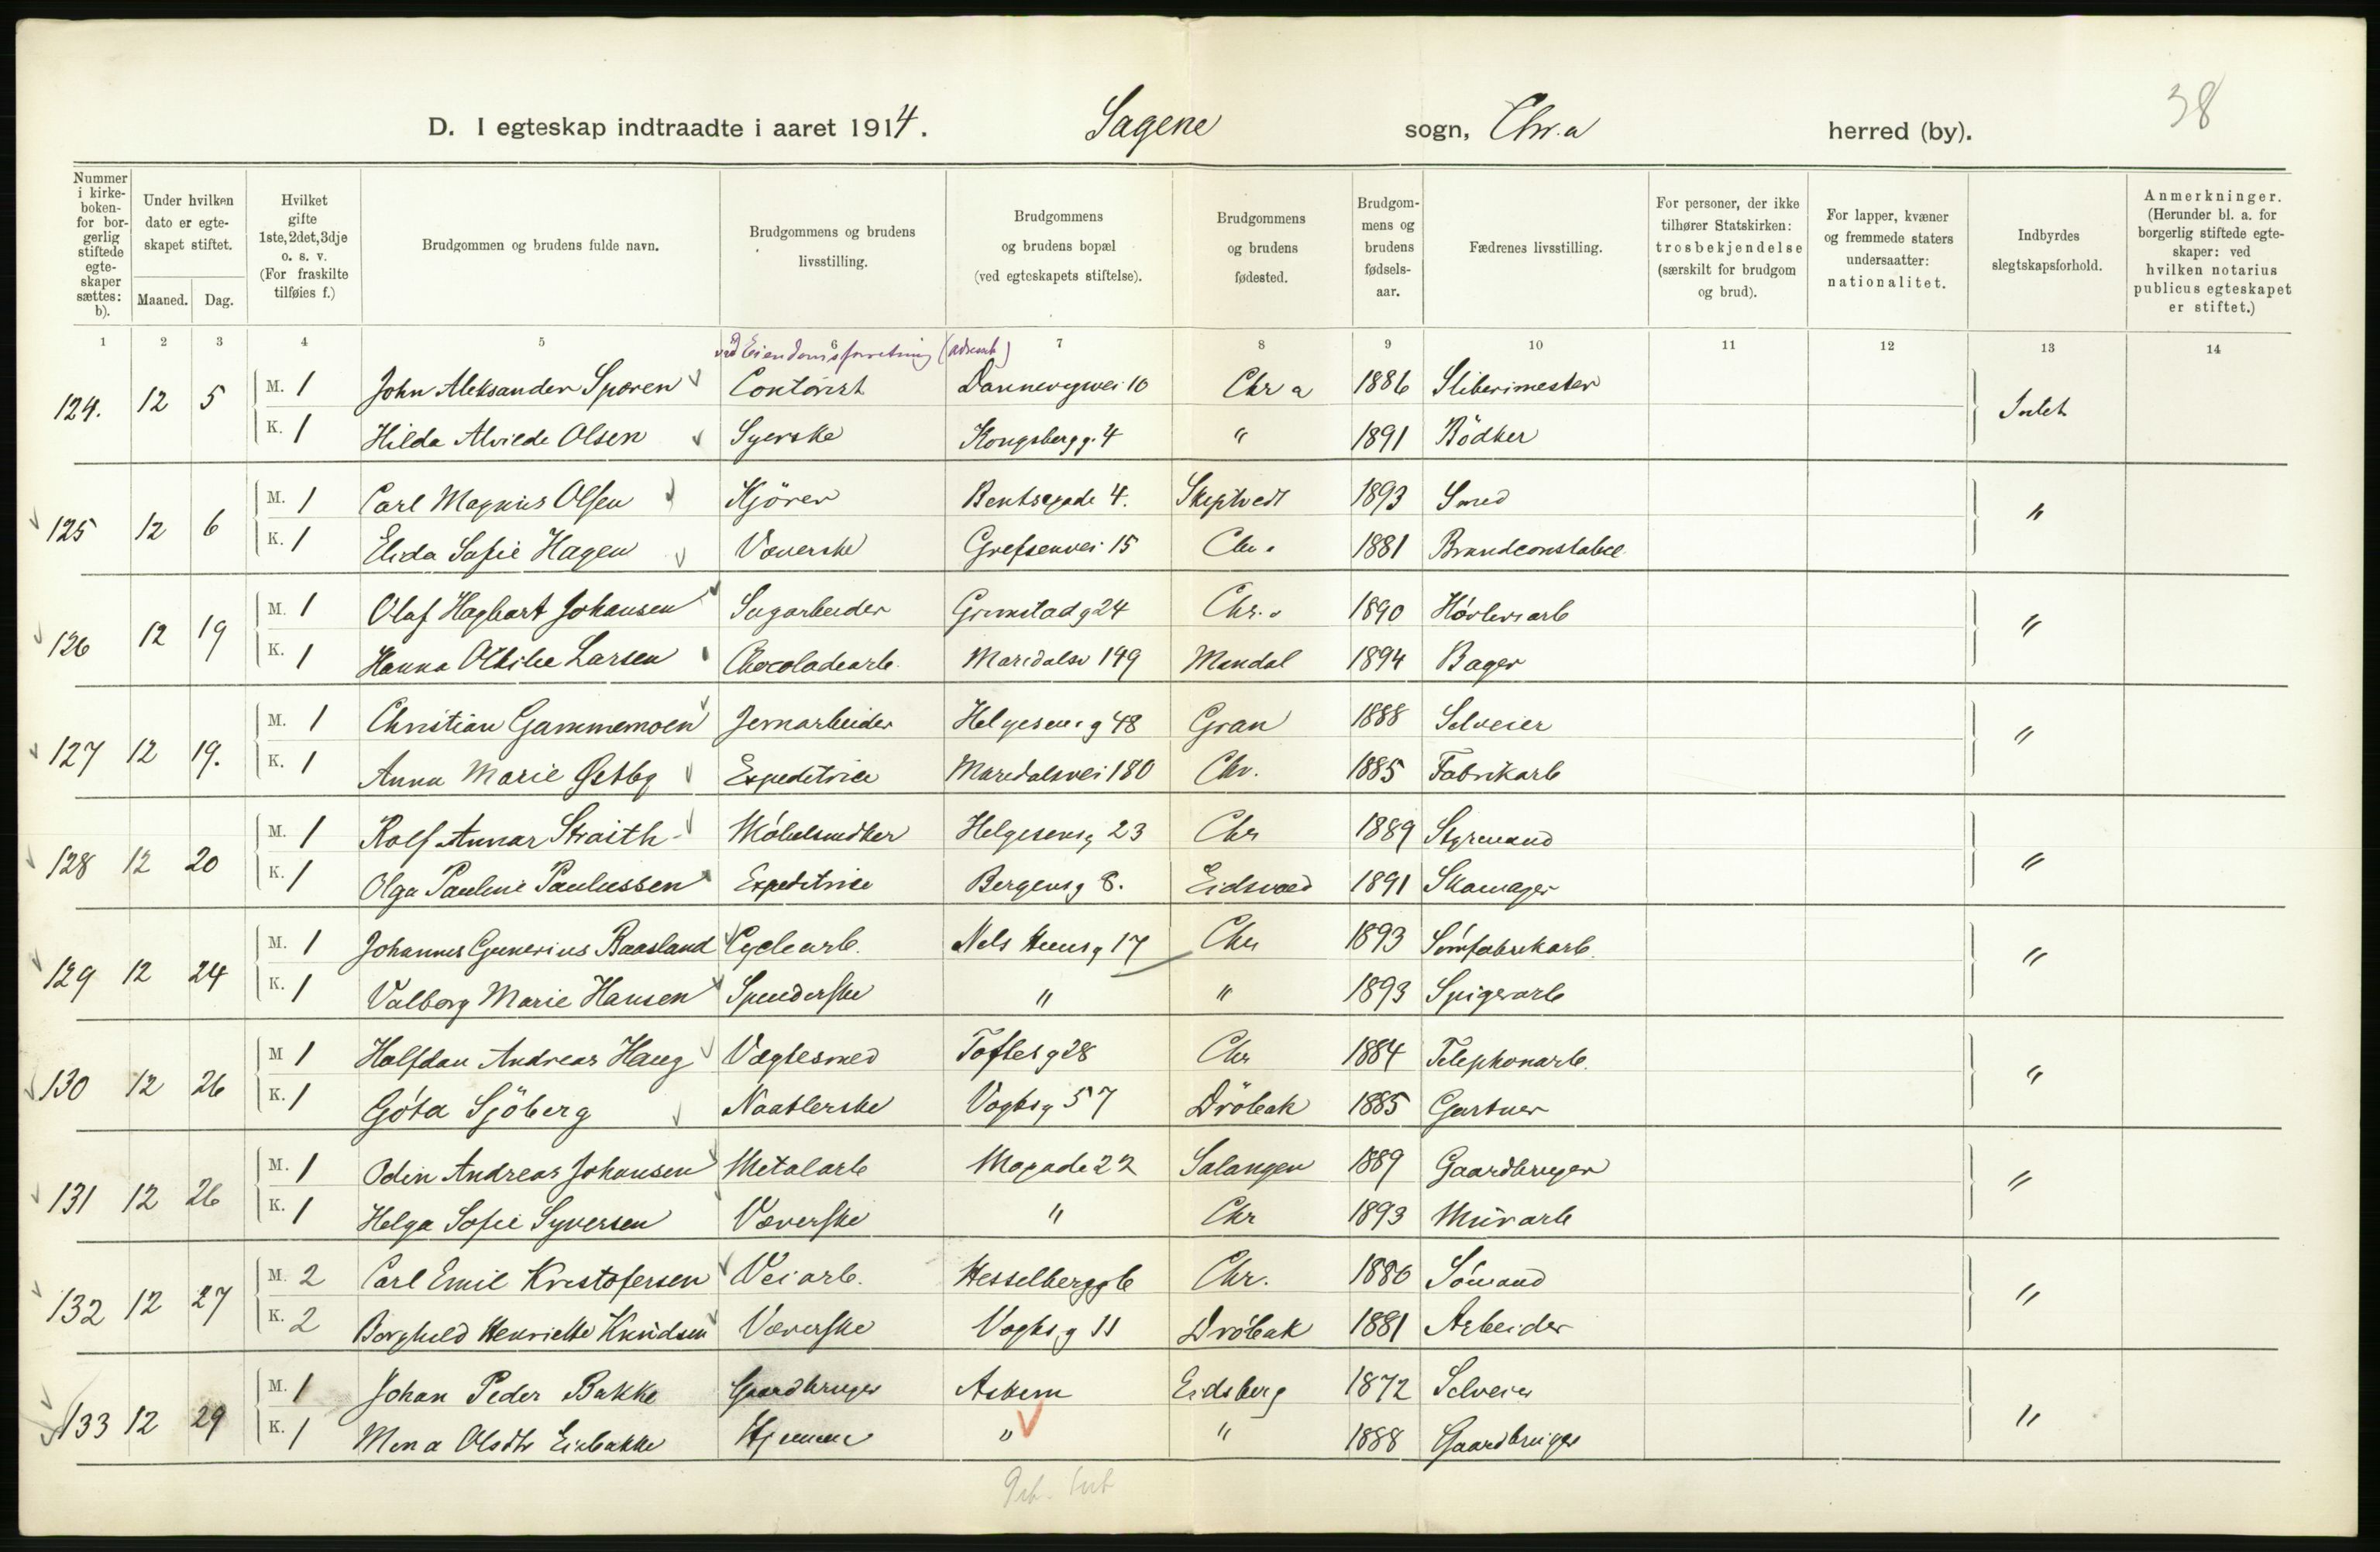 38
D. I egteskap indtraadte i aaret 1914. Sagene sogn, Chr.a herred (by).
Nummer i kirke-boken- for bor-gerlig stiftede egte-skaper sættes: b).
Under hvilken dato er egte-skapet stiftet.
Maaned. Dag.
Hvilket gifte 1ste, 2det, 3dje o. s. v. (For fraskilte tilføies f.)
Brudgommen og brudens fulde navn.
Brudgommens og brudens livsstilling.
Brudgommens og brudens bopæl (ved egteskapets stiftelse).
Brudgommens og brudens fødested.
Brudgom-mens og brudens fødsels-aar.
Fædrenes livsstilling.
For personer, der ikke tilhører Statskirken: trosbekjendelse (særskilt for brudgom og brud).
For lapper, kvæner og fremmede staters undersaatter: nationalitet.
Indbyrdes slegtskapsforhold.
Anmerkninger. (Herunder bl. a. for borgerlig stiftede egte-skaper: ved hvilken notarius publicus egteskapet er stiftet.)
1 2 3 4 5 6 7 8 9 10 11 12 13 14
ved Eiendomsforretning
124. 12 5 M. 1 John Aleksander Sporen Contorist Dannevigsvei 10 Chr a 1886 Sliberimester Intet
K. 1 Hilda Alvilde Olsen Syerske Kongsbergg. 4 " 1891 Bödker
125 12 6 M. 1 Carl Magnus Olsen Kjörer Bentsegade 4. Skiptvedt 1893 Smed "
K. 1 Elida Sofie Hagen Væverske Grefsenvei 15 Chr. 1881 Brandconstabel
126 12 19 M. 1 Olaf Hagbart Johansen Sagarbeider Grimstadg 24 Chr. 1890 Hövleriarb "
K. 1 Hanna Othilie Larsen Chocoladearb. Maridalsv 149 Mandal 1894 Bager
127 12 19. M. 1 Christian Gammemoen Jernarbeider Helgesensg 48 Gran 1888 Selveier "
K. 1 Anna Marie Østby Expeditrice Maridalsvei 180 Chr. 1885 Fabrikarb
128 12 20 M. 1 Rolf Annar Straith Möbelsnedker Helgesensg 23 Chr 1889 Styrmand "
K. 1 Olga Pauline Paulussen Expeditrice Bergensg 8. Eidsvold 1891 Skomager
129 12 24 M. 1 Johannes Gunerius Baasland Cyclearb. Nels Huusg 17 Chr 1893 Sömfabrikarb. "
K. 1 Valborg Marie Hansen Spinderske " " 1893 Spigerarb
130 12 26 M 1 Halfdan Andreas Haug Vægtesmed Toftesg 28 Chr 1884 Telephonarb. "
K. 1 Göta Sjöberg Naatlerske Vogtsg 57 Dröbak 1885 Gartner
131 12 26 M. 1 Odin Andreas Johansen Metalarb Mogade 22 Salangen 1889 Gaardbruger "
K. 1 Helga Sofie Syversen Væverske " Chr 1893 Murarb
132 12 27 M. 2 Carl Emil Kristofersen Veiarb. Hesselbergg 6 Chr. 1880 Sömand "
K. 2 Borghild Henriette Knudsen Væverske Vogtsg 11 Dröbak 1881 Arbeider
133 12 29 M. 1 Johan Peder Bakke Gaardbruger Askim Eidsberg 1872 Selveier "
K. 1 Mina Olsdtr Eidbakke Hjemme " " 1888 Gaardbruger